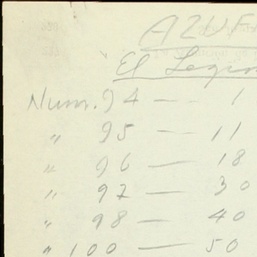 AZUF
El Legio
Num. 94 — 1
" 95 — 11
" 96 — 18
" 97 — 30
" 98 — 40
" 100 — 50